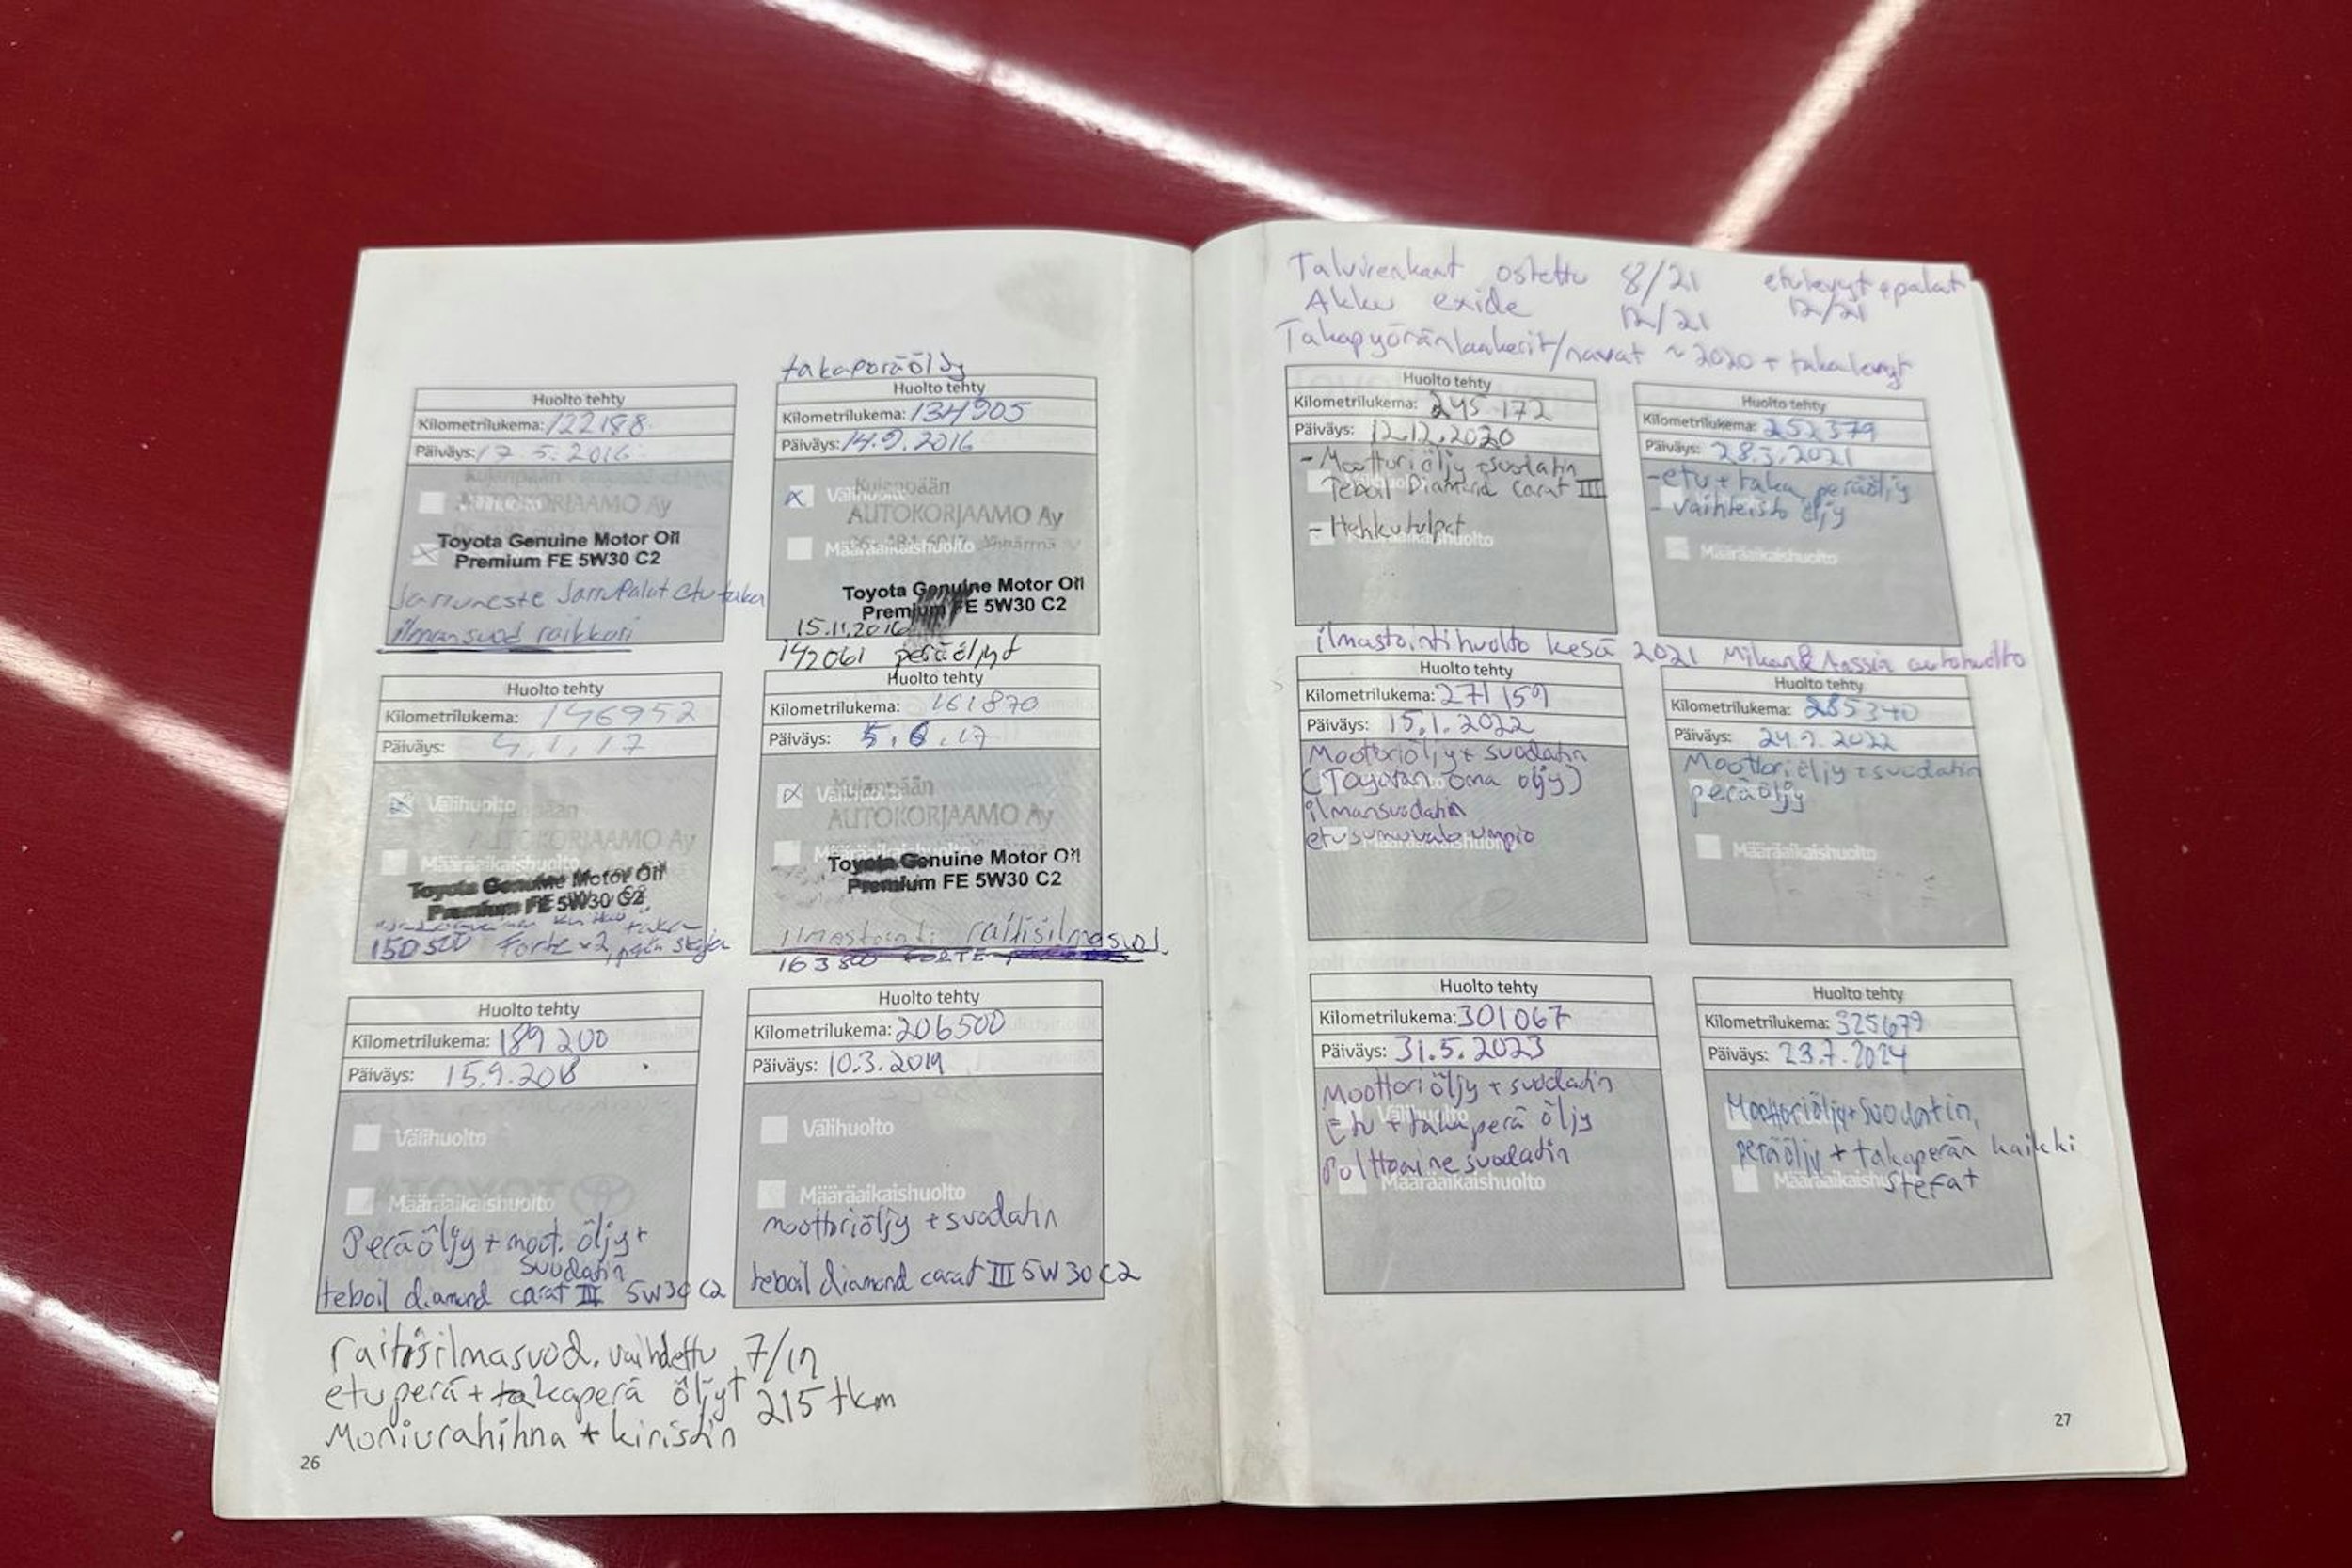 takaperäöljy
Huolto tehty
Kilometrilukema: 122188
Päiväys: 17.5.2016
AUTOKORJAAMO Ay
Toyota Genuine Motor Oil
Premium FE 5W30 C2
Jarruneste Jarrupalat etu taka
ilmansuod raikkari
Huolto tehty
Kilometrilukema: 134905
Päiväys: 14.9.2016
Välihuolto
AUTOKORJAAMO Ay
Määräaikaishuolto
Toyota Genuine Motor Oil
Premium FE 5W30 C2
15.11.2016
142061 peräöljyt
Huolto tehty
Kilometrilukema: 146952
Päiväys: 4.1.17
Välihuolto
AUTOKORJAAMO Ay
Määräaikaishuolto
Toyota Genuine Motor Oil
Premium FE 5W30 C2
150500 Forte x2
Huolto tehty
Kilometrilukema: 161870
Päiväys: 5.6.17
Välihuolto
AUTOKORJAAMO Ay
Määräaikaishuolto
Toyota Genuine Motor Oil
Premium FE 5W30 C2
Ilmastointi raitisilmasuod.
163800 FORTE
Huolto tehty
Kilometrilukema: 189200
Päiväys: 15.9.2018
Välihuolto
Määräaikaishuolto
Peräöljy + moot. öljy +
suodatin
teboil diamond carat III 5W30 C2
Huolto tehty
Kilometrilukema: 206500
Päiväys: 10.3.2019
Välihuolto
Määräaikaishuolto
moottoriöljy + suodatin
teboil diamond carat III 5W30 C2
raitisilmasuod. vaihdettu 7/19
etuperä + takaperä öljyt 215 tkm
Moniurahihna + kiristin
26
Talvirenkaat ostettu 8/21 etulevyt + palat
Akku exide 12/21 12/21
Takapyöränlaakerit/navat ~ 2020 + takalevyt
Huolto tehty
Kilometrilukema: 245 172
Päiväys: 12.12.2020
- Moottoriöljy + suodatin
Teboil Diamond Carat III
- Hehkutulpat
Huolto tehty
Kilometrilukema: 252379
Päiväys: 28.3.2021
- etu + taka peräöljy
- vaihteisto öljy
Määräaikaishuolto
ilmastointihuolto kesä 2021 autohuolto
Huolto tehty
Kilometrilukema: 271 159
Päiväys: 15.1.2022
Moottoriöljy + suodatin
(Toyotan oma öljy)
ilmansuodatin
etusumuvalo umpio
Huolto tehty
Kilometrilukema: 285340
Päiväys: 24.9.2022
Moottoriöljy + suodatin
peräöljy
Määräaikaishuolto
Huolto tehty
Kilometrilukema: 301067
Päiväys: 31.5.2023
Moottoriöljy + suodatin
Välihuolto
Etu + takaperä öljy
Polttoainesuodatin
Määräaikaishuolto
Huolto tehty
Kilometrilukema: 325679
Päiväys: 23.7.2024
Moottoriöljy + suodatin,
peräöljy + takaperän kaikki
stefat
27